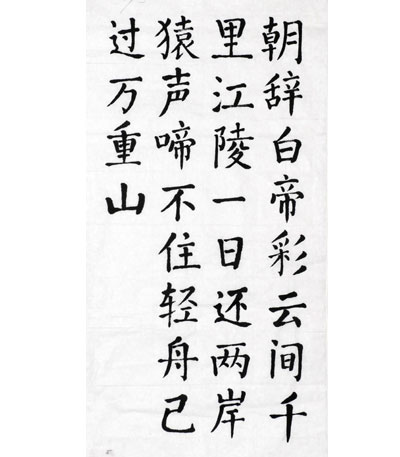 朝辞白帝彩云间千
里江陵一日还两岸
猿声啼不住轻舟已
过万重山